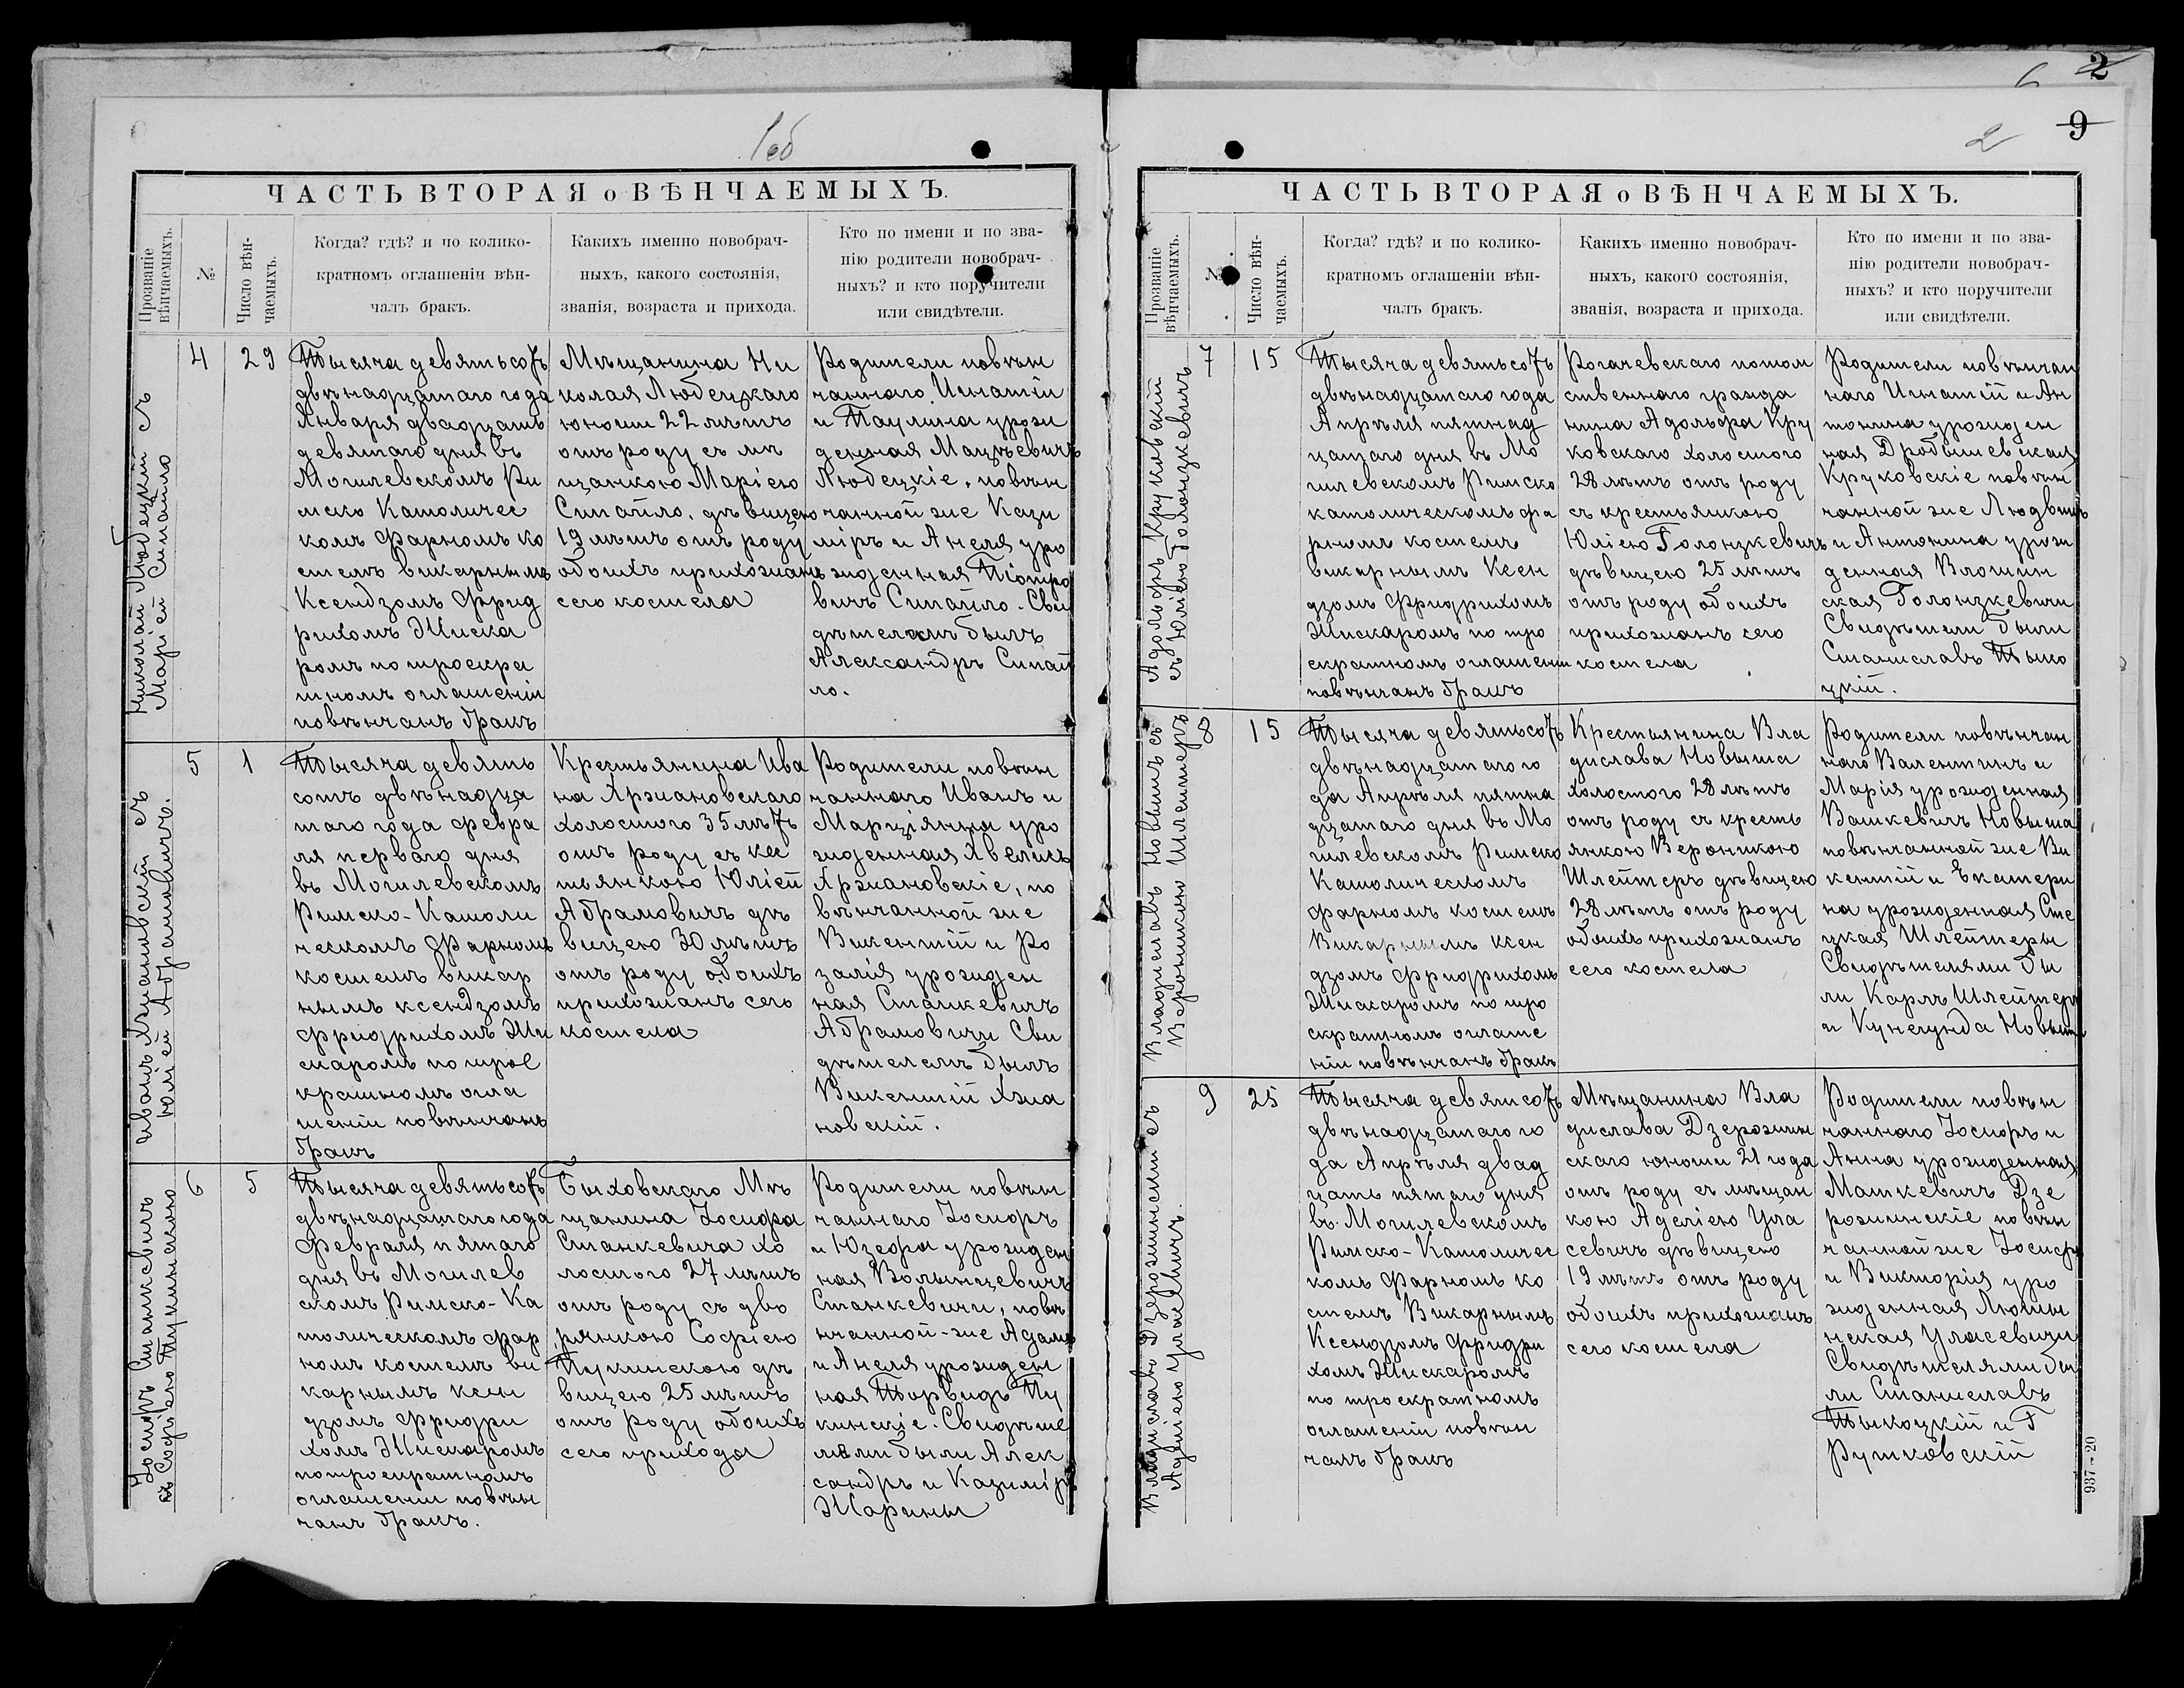 1об
ЧАСТЬ ВТОРАЯ о ВѢНЧАЕМЫХЪ.
Прозваніе вѣнчаемыхъ.
№
Число вѣн-
чаемыхъ.
Когда? гдѣ? и по колико-
кратномъ оглашеніи вѣн-
чалъ бракъ.
Какихъ именно новобрач-
ныхъ, какого состоянія,
званія, возраста и прихода.
Кто по имени и по зва-
нію родители новобрач-
ныхъ? и кто поручители
или свидѣтели.
Николай Любецкій съ
Маріей Сипайло
4
29
Тысяча девятьсотъ
двѣнадцатаго года
Января двадцать
девятаго дня въ
Могилевскомъ Ри
мско Католичес
комъ Фарномъ ко
стелѣ викарнымъ
Ксендзомъ Фрид
рихомъ Жиска
ромъ по троекра
тномъ оглашеніи
повѣнчанъ бракъ
Мѣщанина Ни
колая Любецкаго
юноши 22 лѣтъ
отъ роду съ мѣ
щанкою Маріею
Сипайло, дѣвицею
19 лѣтъ отъ роду
обоихъ прихожанъ
сего костела
Родители повѣн
чаннаго Игнатій
и Паулина урож
денная Мацѣевичъ
Любецкіе, повѣн
чанной же Кази
міръ и Анеля уро
жденная Піотро
вичъ Сипайло. Сви
дѣтелемъ былъ
Александръ Сипай
ло.
Иванъ Хржановскій съ
Юліей Абрамовичъ.
5
1
Тысяча девять
сотъ двѣнадца
таго года Февра
ля перваго дня
въ Могилевскомъ
Римско-Католи
ческомъ Фарномъ
костелѣ викар
нымъ ксендзомъ
Фридрихомъ Жи
скаромъ по трое
кратномъ огла
шеніи повѣнчанъ
бракъ
Крестьянина Ива
на Хржановскаго
холостого 35 лѣтъ
отъ роду съ кес
тьянкою Юліей
Абрамовичъ дѣ
вицею 30 лѣтъ
отъ роду обоихъ
прихожанъ сего
костела
Родители повѣн
чаннаго Иванъ и
Марціянна уро
жденная
Хржановскіе, по
вѣнчанной же
Викентій и Ро
залія урожден
ная Станкевичъ
Абрамовичи Сви
дѣтелемъ былъ
Викентій Хржа
новскій.
Іосифъ Станкевичъ
съ Софіею Пукинскою
6
5
Тысяча девятьсотъ
двѣнадцатаго года
Февраля пятаго
дня въ Могилев
скомъ Римско-Ка
толическомъ Фар
номъ костелѣ ви
карнымъ ксен
дзомъ Фридри
хомъ Жискаромъ
по троекратномъ
оглашеніи повѣн
чанъ бракъ.
Быховскаго Мѣ
щанина Іосифа
Станкевича хо
лостого 27 лѣтъ
отъ роду съ дво
рянкою Софіею
Пукинскою дѣ
вицею 25 лѣтъ
отъ роду обоихъ
сего прихода
Родители повѣн
чаннаго Іосифъ
и Юзефа урожден
ная Волынцевичъ
Станкевичи, повѣ
нчанной-же Адамъ
и Анеля урожден
ная Торвидъ Пу
кинскіе. Свидѣте
лями были Алек
сандръ и Казиміръ
Жарины
2
9
2
ЧАСТЬ ВТОРАЯ о ВѢНЧАЕМЫХЪ.
Прозваніе вѣнчаемыхъ.
№
Число вѣн-
чаемыхъ.
Когда? гдѣ? и по колико-
кратномъ оглашеніи вѣн-
чалъ бракъ.
Какихъ именно новобрач-
ныхъ, какого состоянія,
званія, возраста и прихода.
Кто по имени и по зва-
нію родители новобрач-
ныхъ? и кто поручители
или свидѣтели.
Адольфъ Круковскій
съ Юліею Голонзкевичъ
7
15
Тысяча девятьсотъ
двѣнадцатаго года
Апрѣля пятнад
цатаго дня въ Мо
гилевскомъ Римско
католическомъ фа
рномъ костелѣ
викарнымъ Ксен
дзомъ Фридрихомъ
Жискаромъ по тро
екратномъ оглашеніи
повѣнчанъ бракъ
Рогачевскаго потом
ственнаго гражда
нина Адольфа Кру
ковскаго холостого
28 лѣтъ отъ роду
съ крестьянкою
Юліею Голонзкевичъ
дѣвицею 25 лѣтъ
отъ роду обоихъ
прихожанъ сего
костела
Родители повѣнчан
наго Игнатій и Ан
тонина урожден
ная Дробышевская
Круковскіе повѣн
чанной же Людвикъ
и Антонина урож
денная Влошин
ская Голонзкевичи
Свидѣтели были
Станиславъ Тыко
цкій.
Владиславъ Новышъ съ
Вероникою Шлейтеръ
8
15
Тысяча девятьсотъ
двѣнадцатаго го
да Апрѣля пятна
дцатаго дня въ Мо
гилевскомъ Римско
Католическомъ
фарномъ костелѣ
Викарнымъ ксен
дзомъ Фридрихомъ
Жискаромъ по тро
екратномъ оглаше
ніи повѣнчанъ бракъ
Крестьянина Вла
дислава Новыша
холостого 28 лѣтъ
отъ роду съ кресть
янкою Вероникою
Шлейтеръ дѣвицею
28 лѣтъ отъ роду
обоихъ прихожанъ
сего костела
Родители повѣнчан
наго Валентинъ и
Марія урожденная
Вашкевичъ Новыша
повѣнчанной же Ви
кентій и Екатери
на урожденная Сте
цкая Шлейтеры
Свидѣтелями бы
ли Карлъ Шлейтеръ
и Кунегунда Новышъ
Владиславъ Дзерожинскій съ
Аделіею Уласевичъ.
9
25
Тысяча девятсотъ
двѣнадцатаго го
да Апрѣля двад
цать пятаго дня
въ Могилевскомъ
Римско-Католичес
комъ Фарномъ ко
стелѣ Викарнымъ
Ксендзомъ Фридри
хомъ Жискаромъ
по троекратномъ
оглашеніи повѣн
чанъ бракъ
Мѣщанина Вла
дислава Дзерожин
скаго юноши 21 года
отъ роду съ мѣщан
кою Аделіею Ула
севичъ дѣвицею
19 лѣтъ отъ роду
обоихъ прихожанъ
сего костела
Родители повѣн
чаннаго Іосифъ и
Анна урожденная
Машкевичъ Дзе
рожинскіе повѣн
чанной же Іосифъ
и Викторія уро
жденная
Уласевичи
Свидѣтелями бы
ли Станиславъ
Тыкоцкій и Г
Рутковскій
937-20